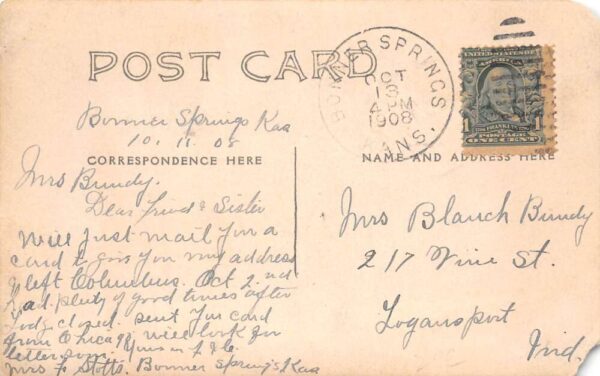 POST CARD
BONNER SPRINGS
KANS.
OCT
4 PM
1908
UNITED STATES OF
AMERICA
FRANKLIN
POSTAGE
ONE CENT
Bonner Springs Kas
10. 11. 08
CORRESPONDENCE HERE
Mrs Bundy.
Dear Friend & Sister
Will just mail you a
card to give you my address
I left Columbus. Oct 2.nd
Had plenty of good times after
closed. sent you card
from Chicago will look for
letter soon. Yours in F L &
Mrs F Stotts. Bonner Springs Kas
NAME AND ADDRESS HERE
Mrs Blanch Bundy
217 Vine St.
Logansport
Ind.